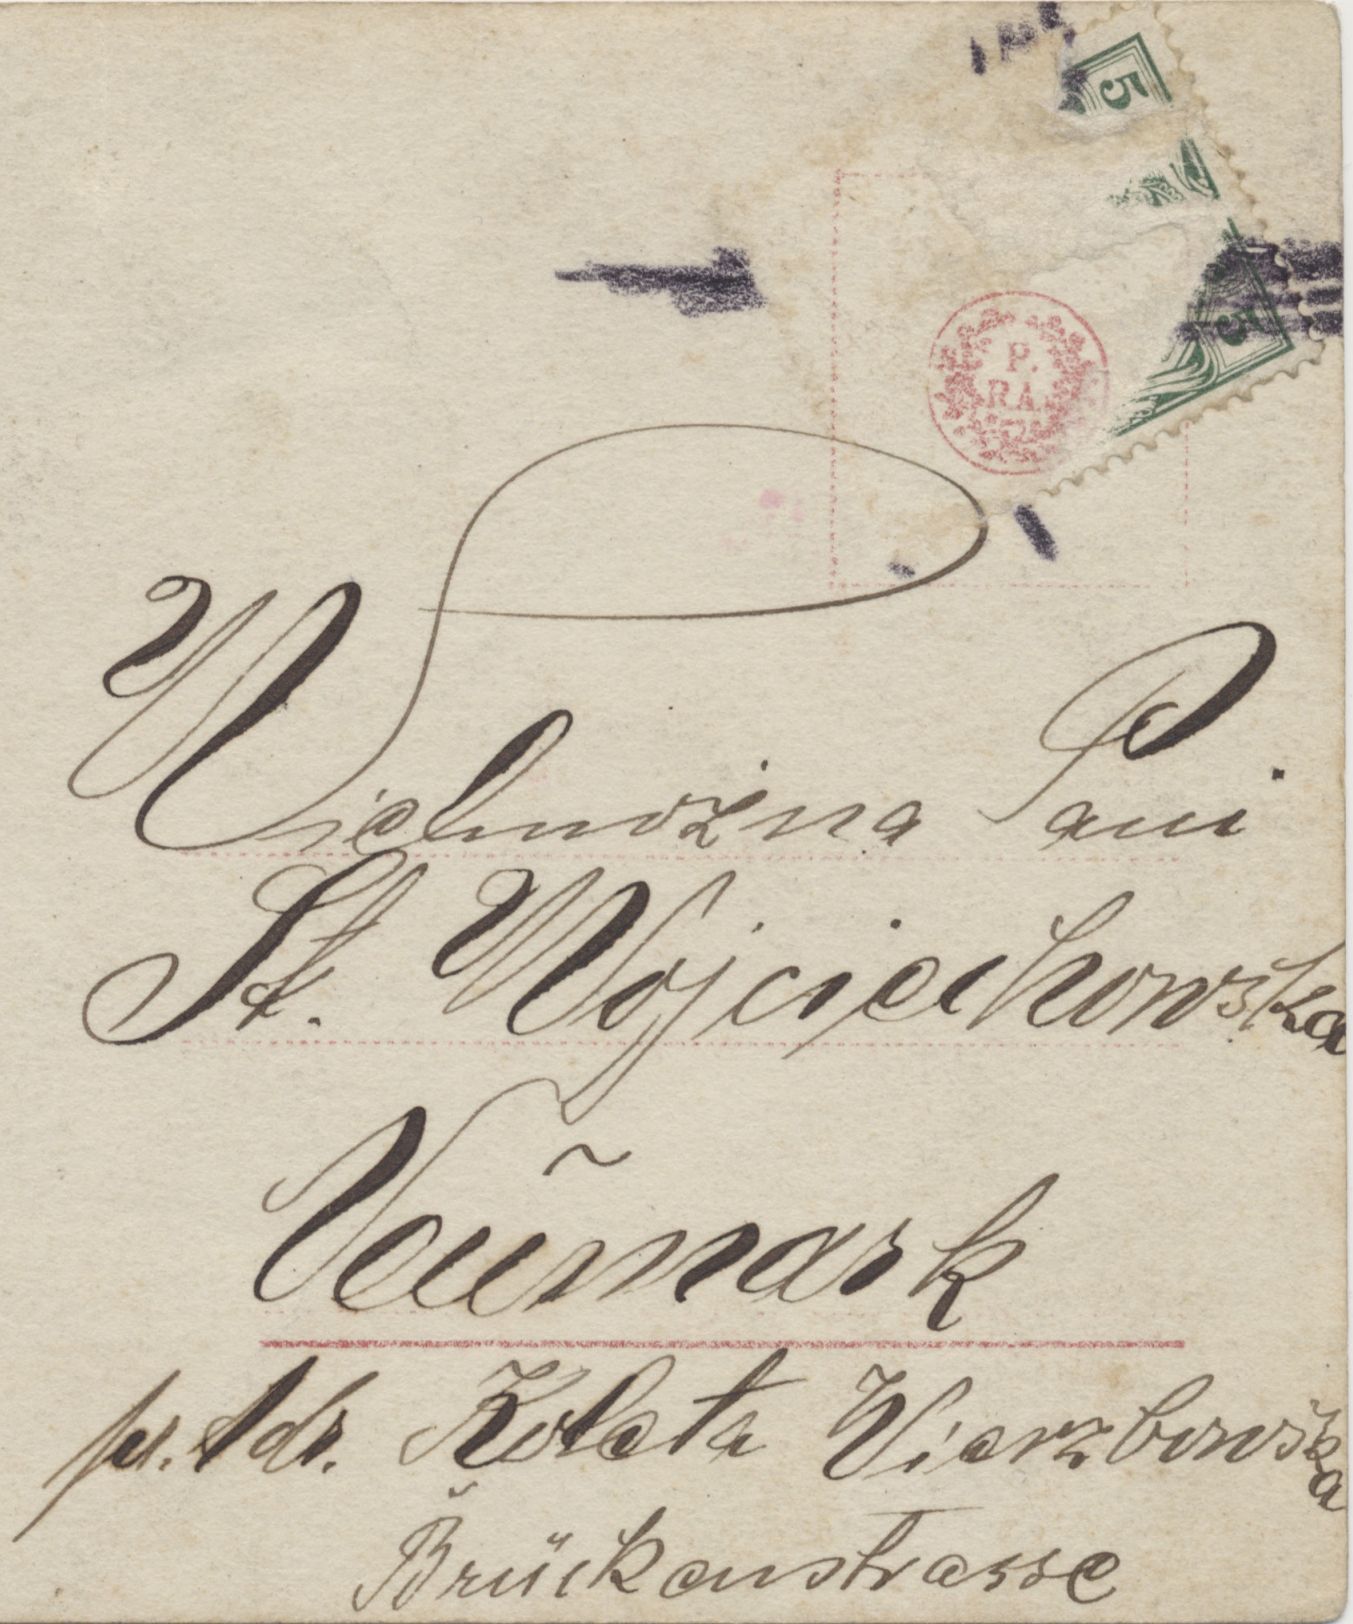 5
5
P.
R.A.
Wielmożna Pani
St. Wojciechowska
Neumark
p. Adr. Koleta Wierzbowska
Brückenstrasse